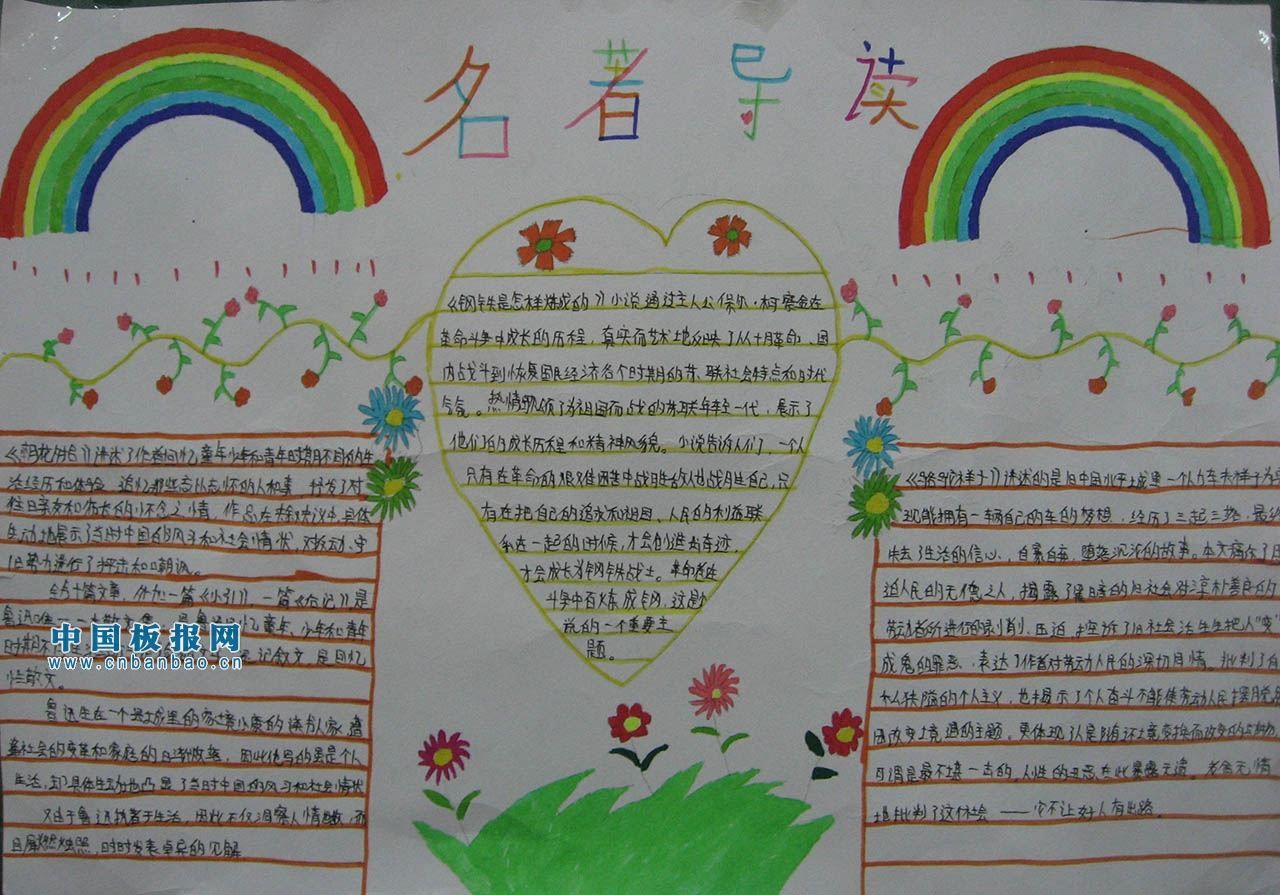 名著导读
《钢铁是怎样炼成的》小说通过主人公保尔·柯察金在
革命斗争中成长的历程，真实而艺术地反映了从十月革命、国
内战斗到恢复国民经济各个时期的苏联社会特点和时代
气氛。热情歌颂了为祖国而战的苏联年轻一代，展示了
他们的成长历程和精神风貌。小说告诉人们，一个人
只有在革命的艰难困苦中战胜敌人也战胜自己，只
有在把自己的追求和祖国、人民的利益联
系在一起的时候，才会创造出奇迹，
才会成长为钢铁战士。革命者在
斗争中百炼成钢，这是小
说的一个重要主
题。
《朝花夕拾》讲述了作者回忆童年少年和青年时期不同的生
活经历和体验，追忆那些难以忘怀的人和事，抒发了对
往日亲友和师长的
生动地展示了当时中国的风习和社会情状，对
旧势力进行了抨击和嘲讽。
全书十篇文章，外加一篇《小引》，一篇《后记》是
鲁迅唯一一本散文集，是鲁迅回忆童年、少年和青年
时期不同 记叙文，是回忆
性散文。
鲁迅生在一个 城里的家境小康的读书人家，
社会的变革和家庭的日渐败落，因此他写的虽是个人
生活，却具体生动地凸显了当时中国的风习和社会情状
又由于鲁迅执著于生活，因此不仅洞察人情世故，而
且 烛照，时时发表卓异的见解
中国板报网
www.cnbanbao.cn
《骆驼祥子》讲述的是旧中国北平城里一个人力车夫祥子为实
现能拥有一辆自己的车的梦想，经历了三起三落，最终
失去了生活的信心，自暴自弃，堕落沉沦的故事。本文痛斥了压
迫人民的无德之人，揭露了黑暗的旧社会对淳朴善良的
劳动者所进行的剥削、压迫，控诉了旧社会活生生把人"变"
成鬼的罪恶，表达了作者对劳动人民的深切同情。批判了自
私狭隘的个人主义，也揭示了个人奋斗不能使劳动人民摆脱
因改变境遇的主题。更体现了人是随环境变换而改变的动物
可谓是最不堪一击的，人性的丑恶在此暴露无遗。老舍无情
地批判了这个社会——它不让好人有出路。